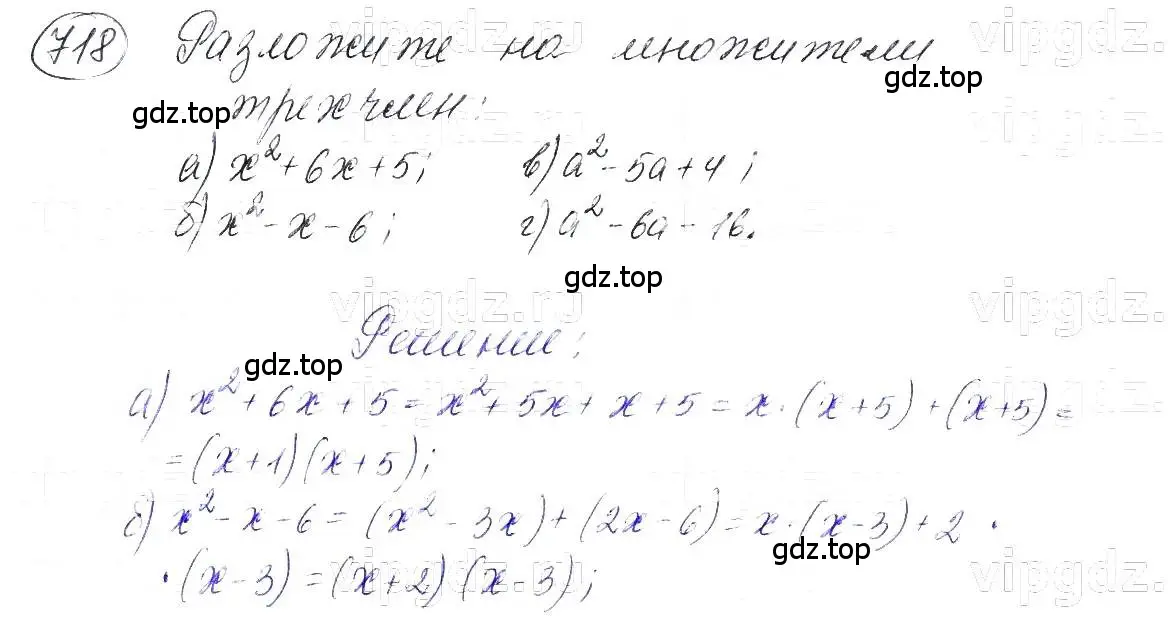 718 Разложите на множители
трехчлен:
а) x² + 6x + 5; в) a² - 5a + 4;
б) x² - x - 6; г) a² - 6a - 16.
Решение:
а) x² + 6x + 5 = x² + 5x + x + 5 = x · (x + 5) + (x + 5) =
= (x + 1)(x + 5);
б) x² - x - 6 = (x² - 3x) + (2x - 6) = x · (x - 3) + 2 ·
· (x - 3) = (x + 2)(x - 3);
gdz.top
gdz.top
gdz.top
gdz.top
gdz.top
vipgdz.ru
vipgdz.
vipgdz.
vipgdz.
vipgdz.ru
vipgdz.